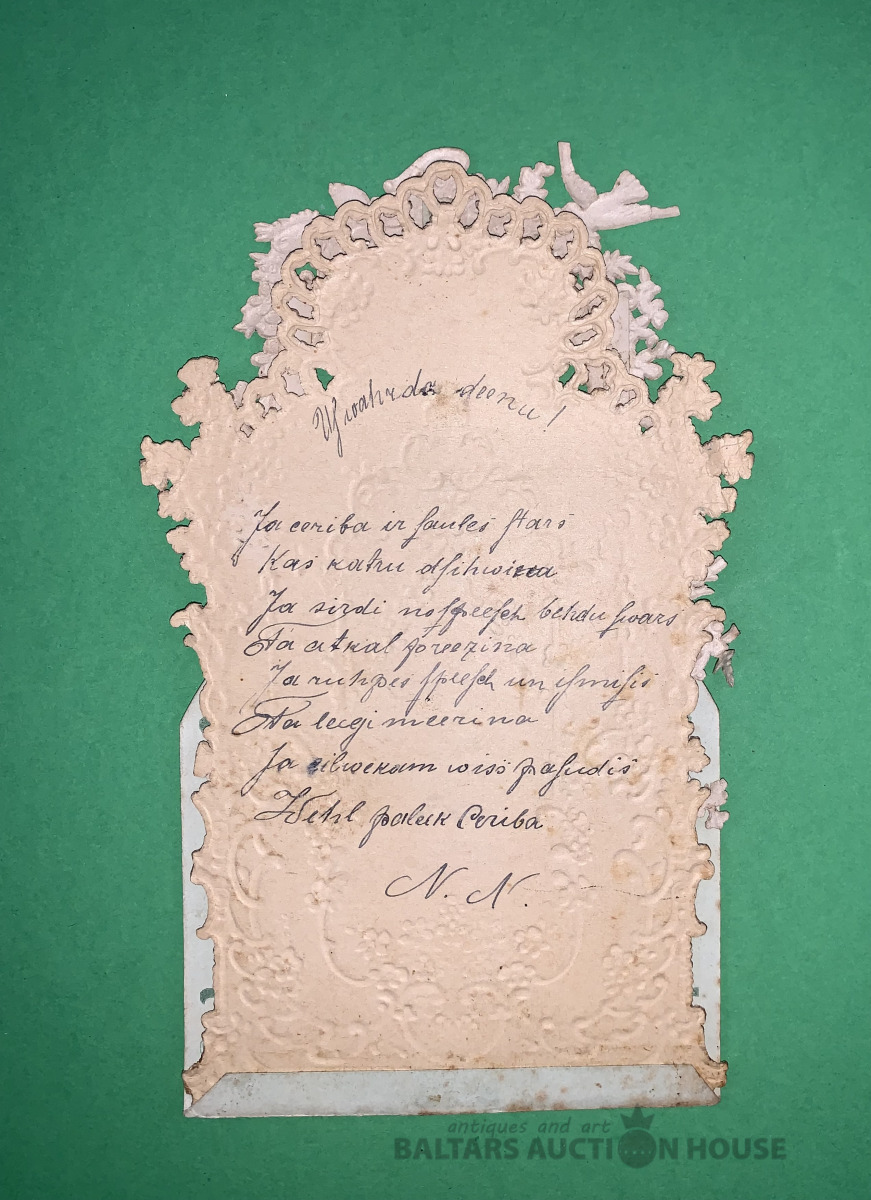 Us wahrda deenu!
Ja ceriba ir saules stars
Kas katru dsihwina
Ja sirdi nospeesch behdu swars
Ta atkal preezina
Ja ruhpes speesch un ismisis
Ta leegi meerina
Ja zilwekam wiss pasudis
Wehl paleek Ceriba
N. N.
antiques and art
BALTARS AUCTION HOUSE